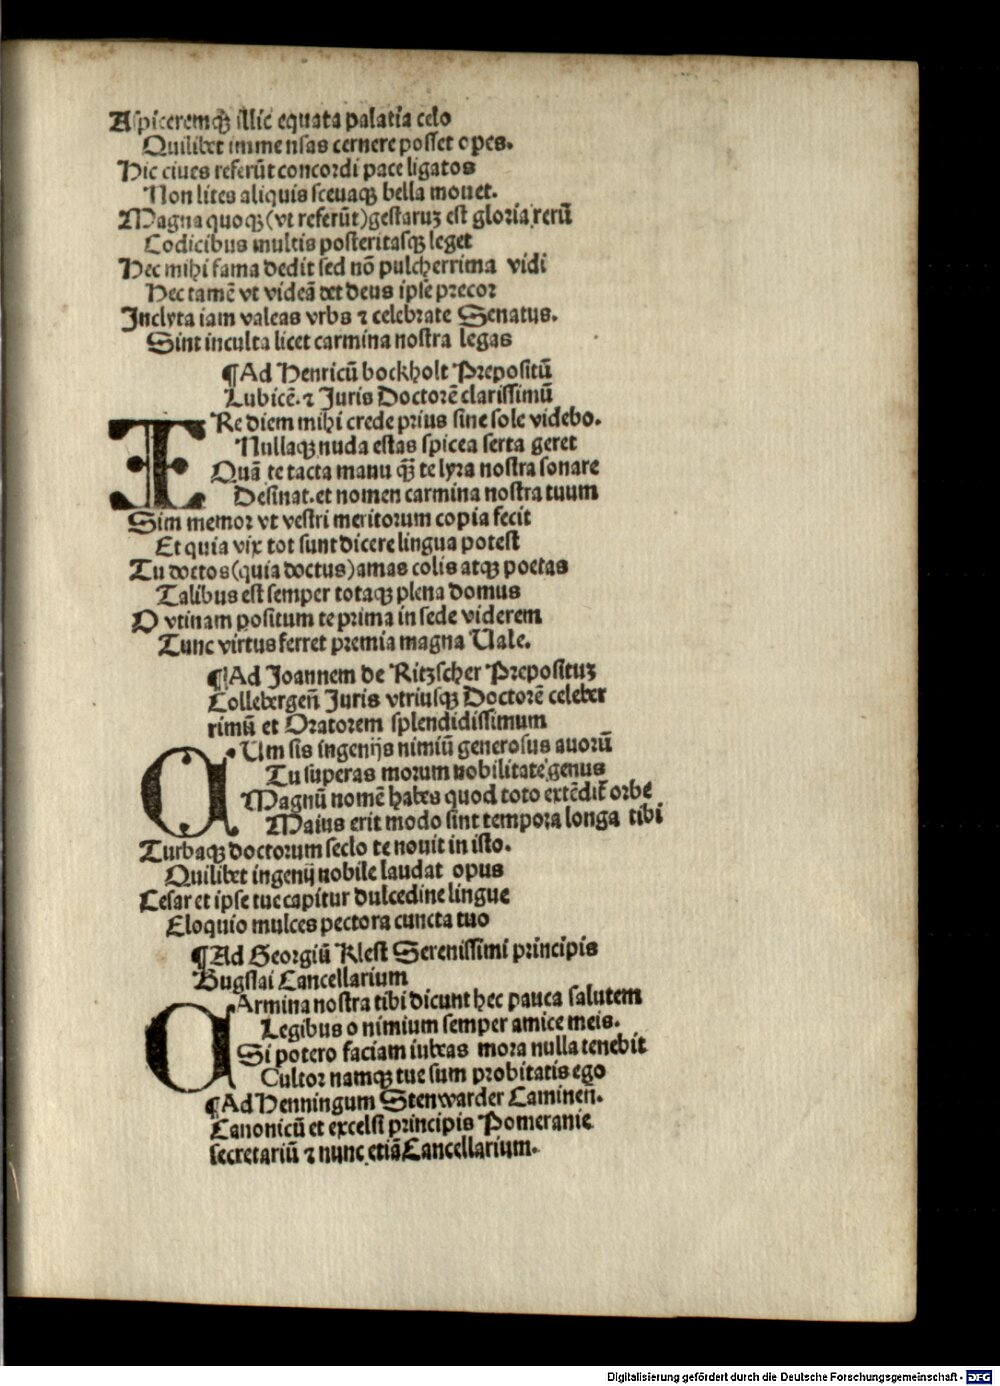 Aspiceremqꝫ illic equata palatia celo
Quilibet immensas cernere posset opes.
Hic ciues referūt concordi pace ligatos
Non lites aliquis sceuaqꝫ bella mouet.
Magna quoqꝫ (vt referūt) gestaruꝫ est gloria rerū
Codicibus multis posteritasqꝫ leget
Hec mihi fama dedit sed nō pulcherrima vidi
Hec tamē vt videā det deus ipse precor
Inclyta iam valeas vrbs ⁊ celebrate Senatus.
Sint inculta licet carmina nostra legas
¶Ad Henricū bockholt Prepositū
Lubicē. ⁊ Juris Doctorē clarissimū
TRe diem mihi crede prius sine sole videbo.
Nullaqꝫ nuda estas spicea serta geret
Quā te tacta manu qꝫ̄ te lyra nostra sonare
Desinat. et nomen carmina nostra tuum
Sim memor vt vestri meritorum copia fecit
Et quia vix tot sunt dicere lingua potest
Tu doctos (quia doctus) amas colis atqꝫ poetas
Talibus est semper totaqꝫ plena domus
O vtinam positum te prima in sede viderem
Tunc virtus ferret premia magna Vale.
¶Ad Joannem de Ritzscher Preposituꝫ
Collebergen̄ Juris vtriusqꝫ Doctorē celeber
rimū et Oratorem splendidissimum
CUm sis ingenijs nimiū generosus auorū
Tu superas morum nobilitate genus
Magnū nomē habes quod toto extēdit̄ orbe
Maius erit modo sint tempora longa tibi
Turbaqꝫ doctorum seclo te nouit in isto.
Quilibet ingenij nobile laudat opus
Cesar et ipse tue capitur dulcedine lingue
Eloquio mulces pectora cuncta tuo
¶Ad Georgiū Klest Serenissimi principis
Bugslai Cancellarium
CArmina nostra tibi dicunt hec pauca salutem
Legibus o nimium semper amice meis.
Si potero faciam iubeas mora nulla tenebit
Cultor namqꝫ tue sum probitatis ego
¶Ad Henningum Stenwarder Caminen.
Canonicū et excelsi principis Pomeranie
secretariū ⁊ nunc etiā Cancellarium.
Digitalisierung gefördert durch die Deutsche Forschungsgemeinschaft - DFG